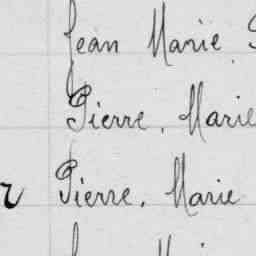 Jean Marie
Pierre, Marie
Pierre, Marie